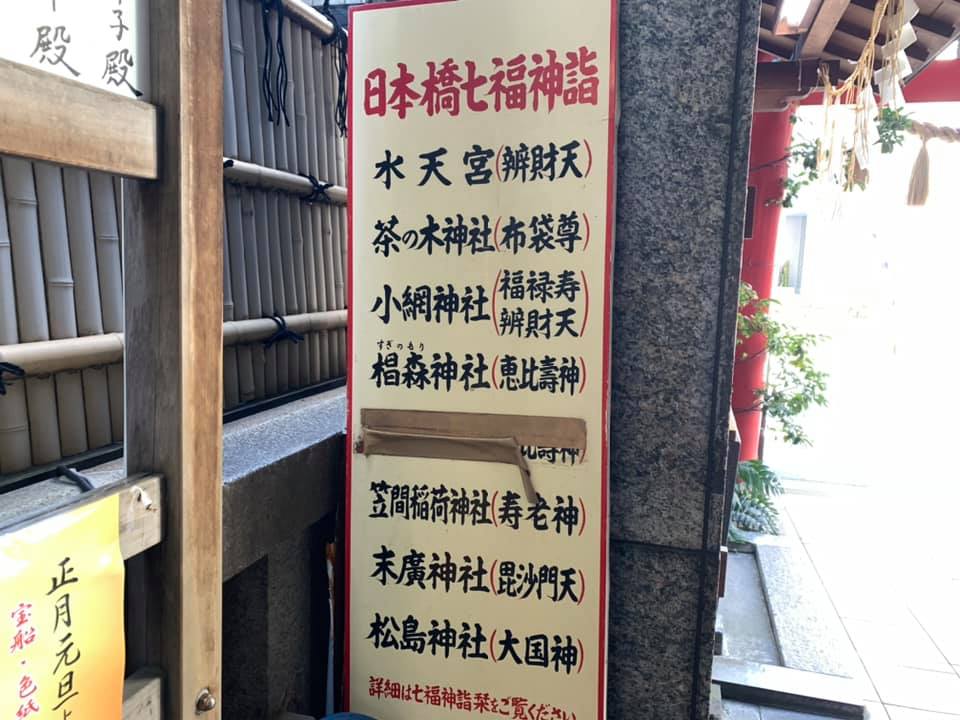 子殿
殿
日本橋七福神詣
水天宮(辨財天)
茶の木神社(布袋尊)
小網神社(福禄寿
辨財天)
すぎのもり
椙森神社(恵比壽神)
比壽神)
笠間稲荷神社(寿老神)
末廣神社(毘沙門天)
松島神社(大国神)
詳細は七福神詣栞をご覧ください
正月元旦よ
宝船・色紙